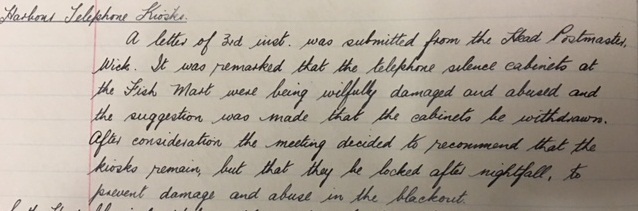 Harbour Telephone Kiosks.
A letter of 3rd inst. was submitted from the Head Postmaster,
Wick. It was remarked that the telephone silence cabinets at
the Fish Mart were being wilfully damaged and abused and
the suggestion was made that the cabinets be withdrawn.
After consideration the meeting decided to recommend that the
kiosks remain, but that they be locked after nightfall, to
prevent damage and abuse in the blackout.